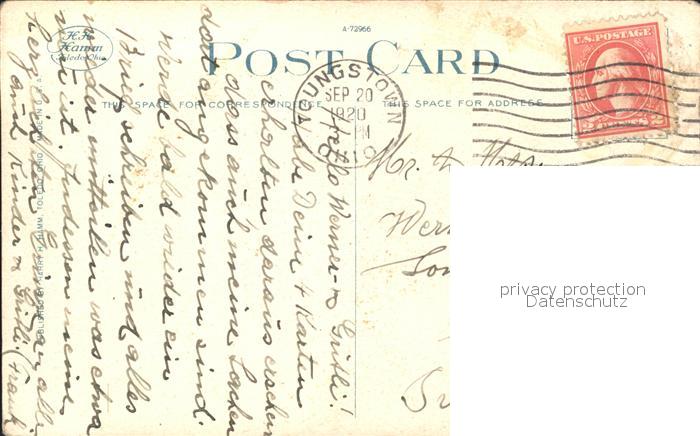 A-72966
H.H.
Hamm
Toledo Ohio
POST CARD
THIS SPACE FOR CORRESPONDENCE
THIS SPACE FOR ADDRESS
YOUNGSTOWN
SEP 20
1920
PM
OHIO
U.S. POSTAGE
2 CENTS 2
PUBLISHED BY HARRY H. HAMM, TOLEDO, OHIO. MADE IN U.S.A.
Hello Werner & Gritli!
Habe Deine 4 Karten
erhalten daraus ersehen
dass auch meine Sachen
dort angekommen sind.
Werde bald wider ein
Brief schreiben und alles
wider mitteilen was etwa
ist. Indessen meine
herzlichsten an alle
auch Kinder & Gritli. (Frank)
Mr. &
Wer
privacy protection
Datenschutz